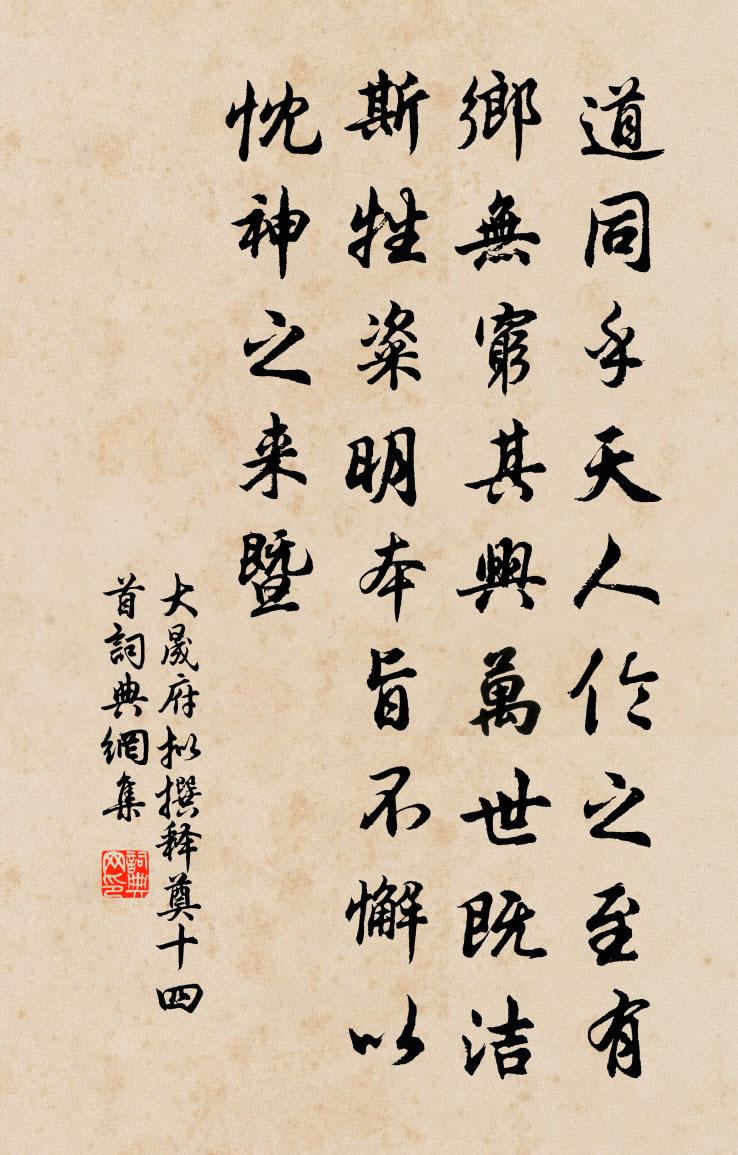 道同乎天人伦之至有
鄉無窮其興萬世既洁
斯牲粢明本旨不懈以
忱神之来暨
大晟府拟撰释奠十四
首詞典網集
詞典网印